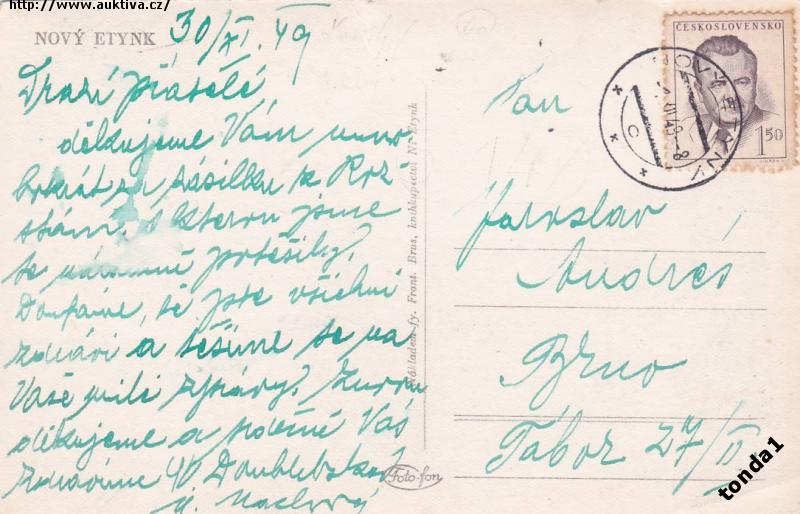 http://www.auktiva.cz/
NOVÝ ETYNK
30/XI. 49
Drazí přátelé
děkujeme Vám mno
hokrát za zásilku
s kterou jsme
se potěšily.
Doufáme, že jste všichni
zdrávi a těšíme se na
Vaše milé zprávy.
děkujeme a srdečně Vás
zdravíme
Nákladem fy. Frant. Brus, knihkupectví N. Etynk
Foto-fon
ČESKOSLOVENSKO
1.50
NOVÝ ETYNK
C
Pan
Jaroslav
Andres
Brno
Tábor 27/II
tonda1